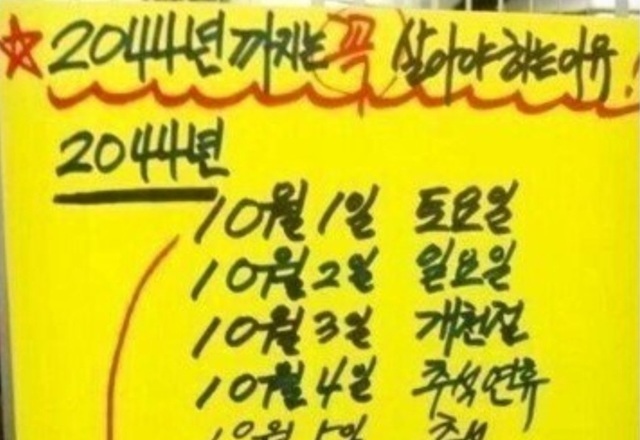 ☆ 2044년 까지는 꼭 살아야 하는 이유!
2044년
10월 1일 토요일
10월 2일 일요일
10월 3일 개천절
10월 4일 추석연휴
10월 5일 추석